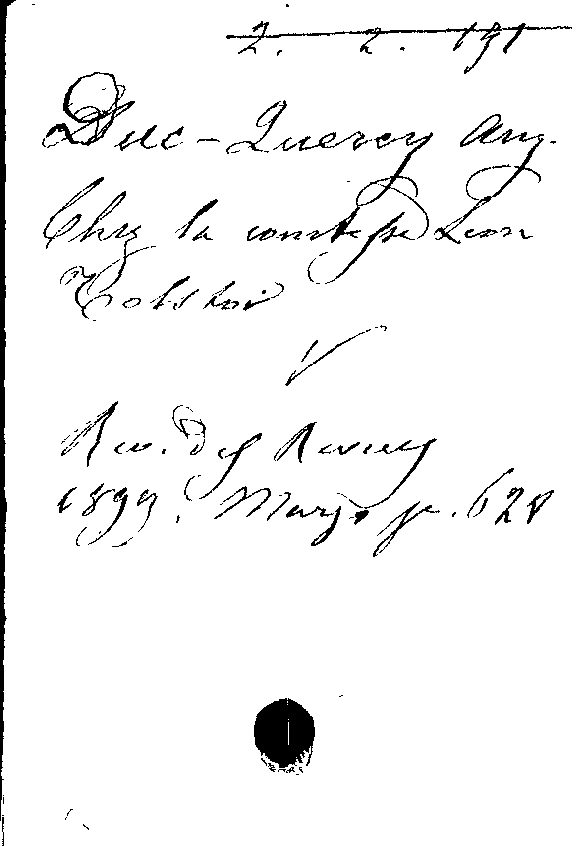 2. 2. 191
Duc-Quercy Ang.
Chez la comtesse Léon
Tolstoi
Rev. des Revues
1899, Marzo p. 628